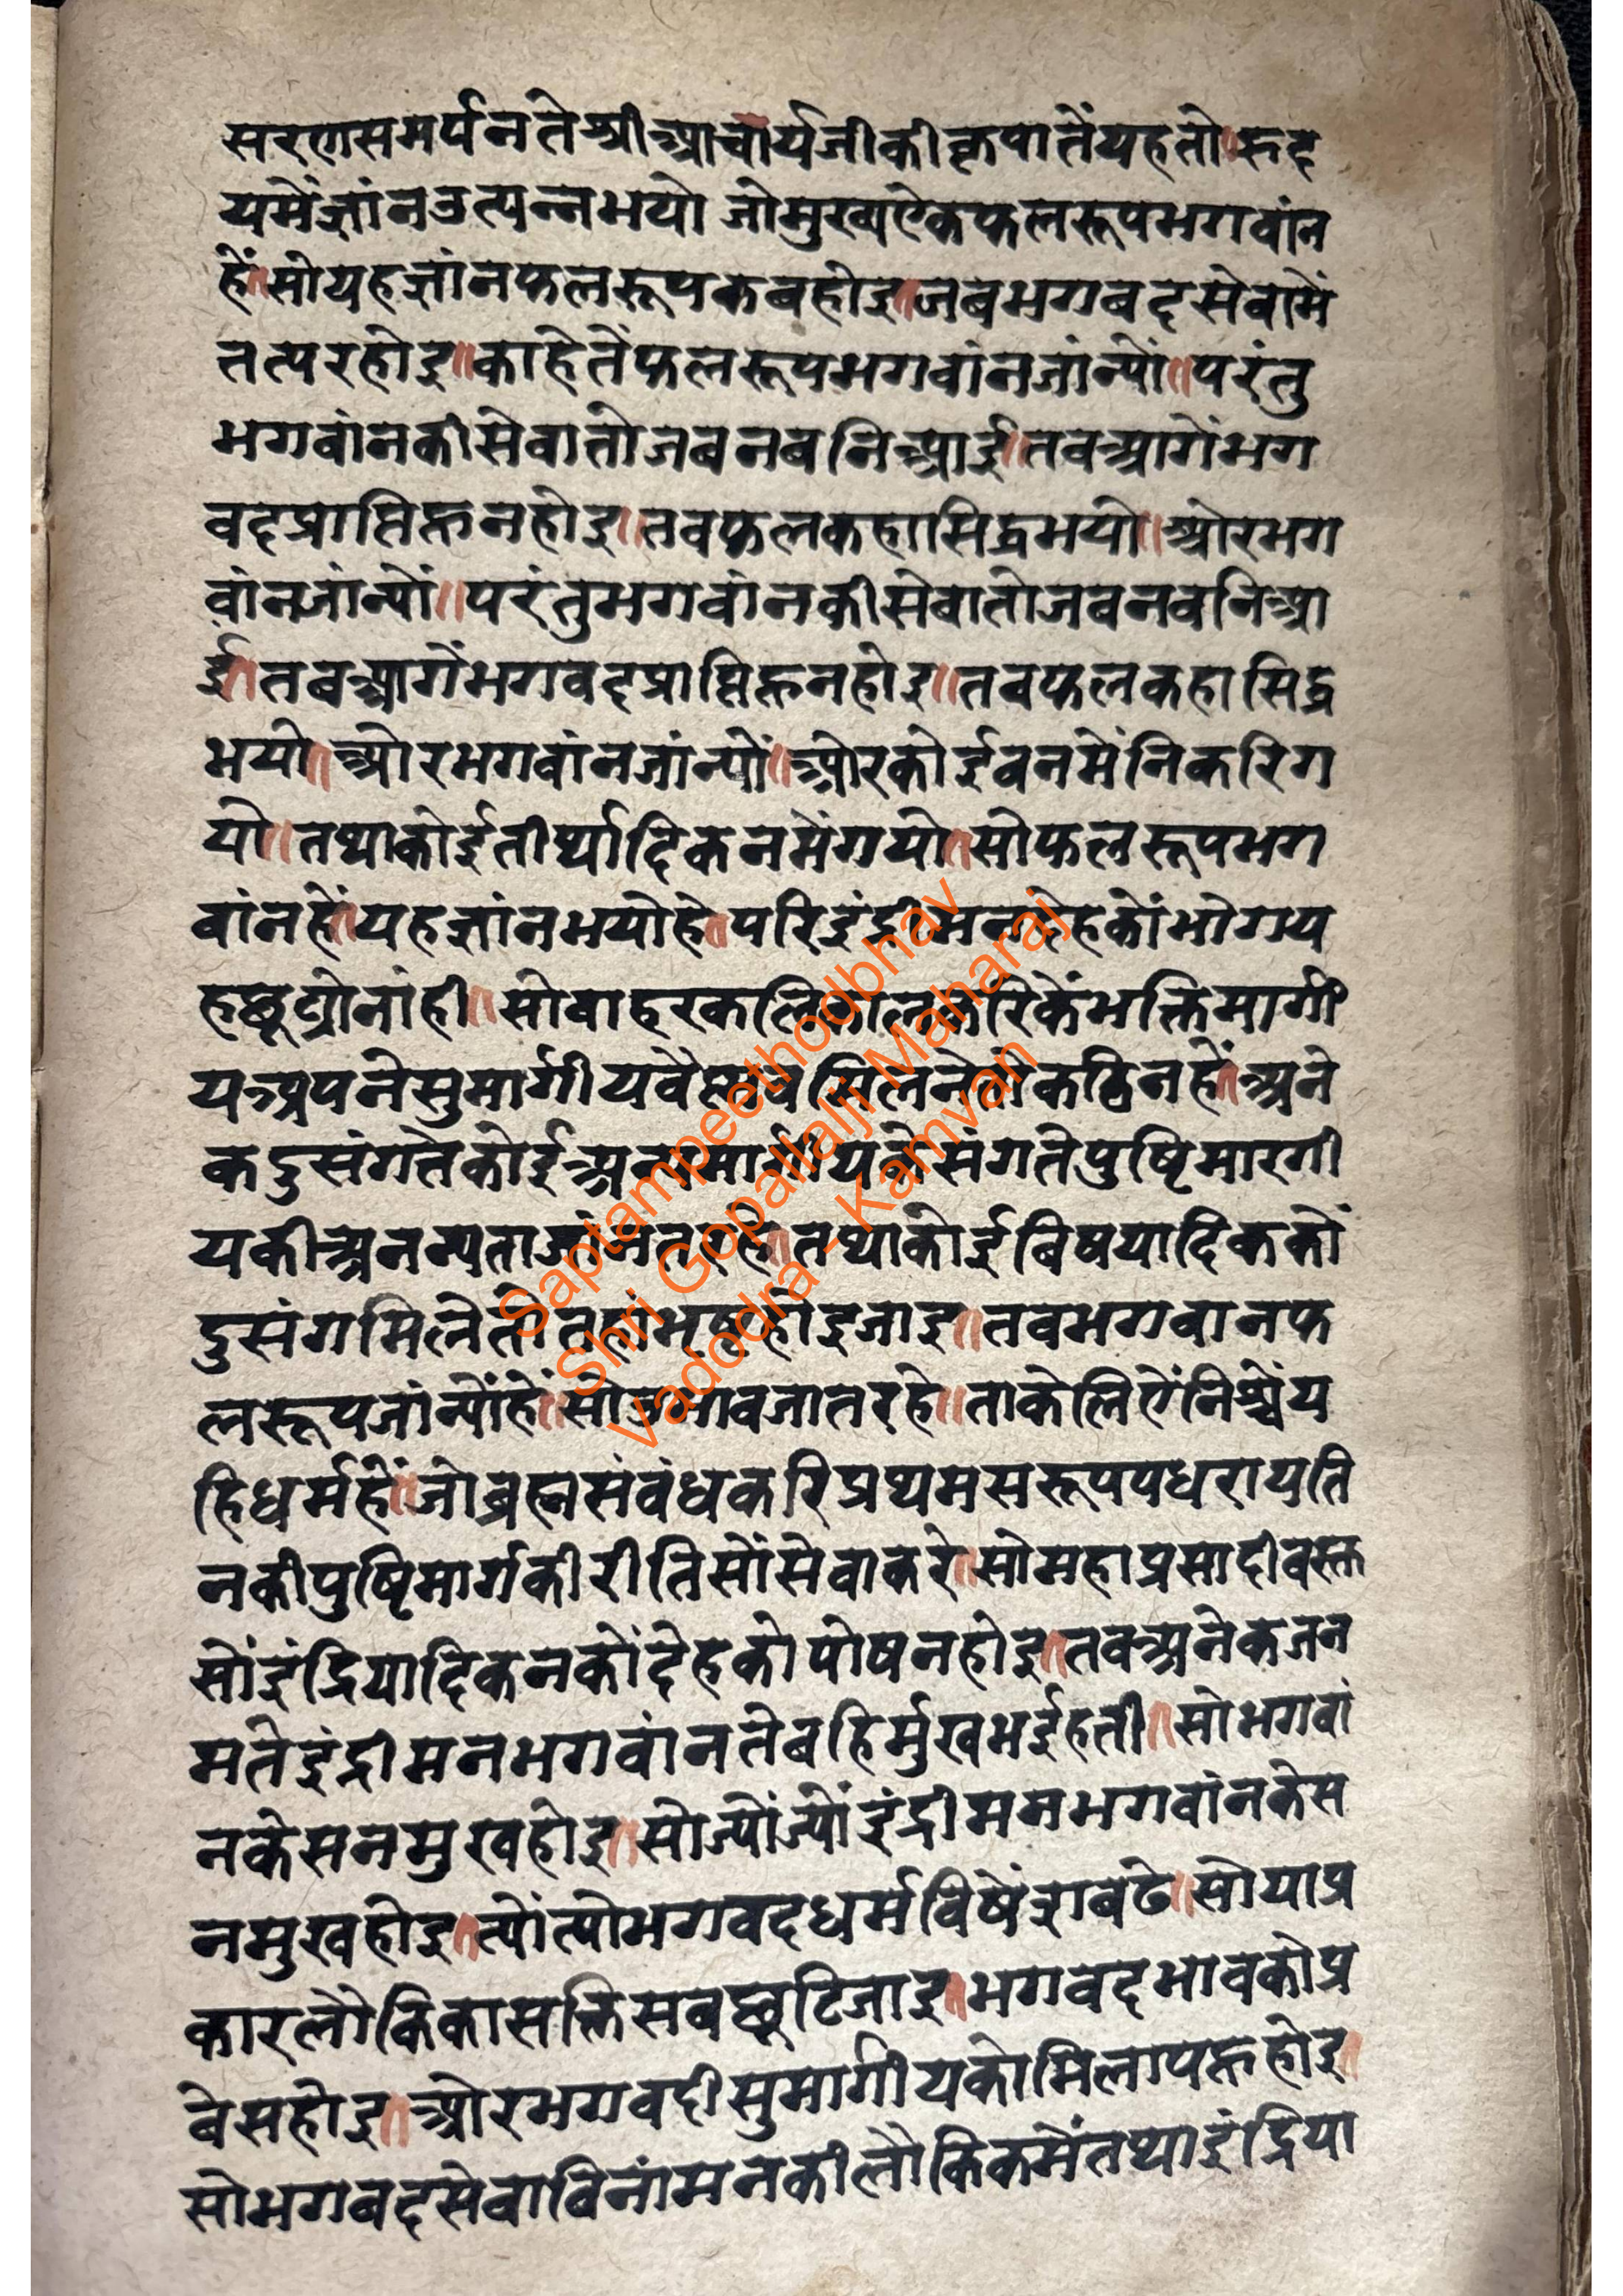 सरणसमर्पनतेश्रीआचार्यजीकीकृपातेंयहतो॥रूद
यमेंज्ञांनउत्पन्नभयो जोमुख्यऐकफलरूपभगवांन
हें॥सोयहज्ञांनफलरूपकबहोइ॥जबभगबदसेवामें
तत्परहोइ॥काहेतेंफलरूपभगवांनजांन्यों॥परंतु
भगवांनकीसेवातोजबनबनिआई॥तवआगेंभग
वदप्राप्तिहूनहोइ॥तवफलकहासिद्धभयो॥ओरभग
वांनजांन्यों॥परंतुभगवांनकीसेवातोजबनवनिआ
ई॥तबआगेंभगवदप्राप्तिहूनहोइ॥तबफलकहासिद्ध
भयो॥ओरभगवांनजांन्यों॥ओरकोईवनमेंनिकरिग
यो॥तथाकोईतीर्थादिकनमेंगयो॥सोफलरूपभग
वांनहें॥यहज्ञांनभयोहे॥परिइंद्रीमनदेहकोंभोगय
हछूट्योनांही॥सोबाहरकलिकालकरिकेंभक्तिमार्गी
यअपनेसुमार्गीयवैष्णवमिलनेतोकठिनहें॥अने
कदुसंगतेकोईअन्यमार्गीयकेसंगतेपुष्टिमारगी
यकीअनन्यताजांनतरहे॥तथाकोईबिषयादिककों
दुसंगमिलेतोतहांभ्रष्टहोइजाइ॥तवभगवानफ
लरूपजांन्योंहें॥सोउभावजातरहे॥ताकेलिऐंनिश्चेंय
हिधर्महें॥जोब्रह्मसंवंधकरिप्रथमसरूपपधरायति
नकीपुष्टिमार्गकीरीतिसोंसेवाकरे॥सोमहाप्रसादीवस्त
सोंइंद्रियादिकनकोंदेहकोपोषनहोइ॥तवअनेकजन
मतेइंद्रीमनभगवांनतेबहिर्मुखभईहती॥सोभगवां
नकेसनमुखहोइ॥सोज्योंज्योंइंद्रीमनभगवांनकेस
नमुखहोइ॥त्योंत्योभगवदधर्मविषेंरुचबढे॥सोयाप्र
कारलौकिकासक्तिसबछूटिजाइ॥भगवदभावकोप्र
बेसहोइ॥ओरभगवदीसुमार्गीयकोमिलापहूहोइ॥
सोभगबदसेवाविनांमनकीलौकिकमेंतथाइंद्रिया
Saptampeethodbhav
Shri Gopallalji Maharaj
Vadodra - Kamvan